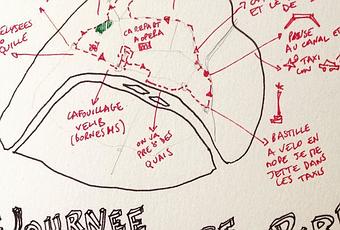 ET LE DE
ELYSEES
QUILLE
CAREPART
A OPERA
PAUSE
AU CANAL
TAXI
CAFOUILLAGE
VELIB
(BORNES HS)
ON VA
PRES DES
QUAIS
BASTILLE
A VELO EN
MODE JE ME
JETTE DANS
LES TAXIS
JOURNEE